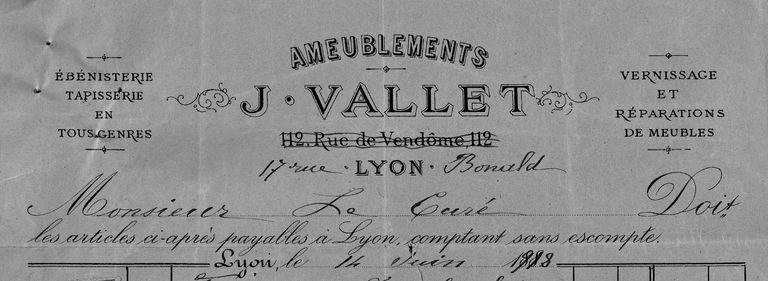 AMEUBLEMENTS
ÉBÉNISTERIE
TAPISSERIE
EN
TOUS GENRES
J. VALLET
VERNISSAGE
ET
RÉPARATIONS
DE MEUBLES
112, Rue de Vendôme, 112
17 rue · LYON · Bonald
Monsieur Le Curé Doit
les articles ci-après payables à Lyon, comptant sans escompte.
Lyon, le 14 Juin 1888